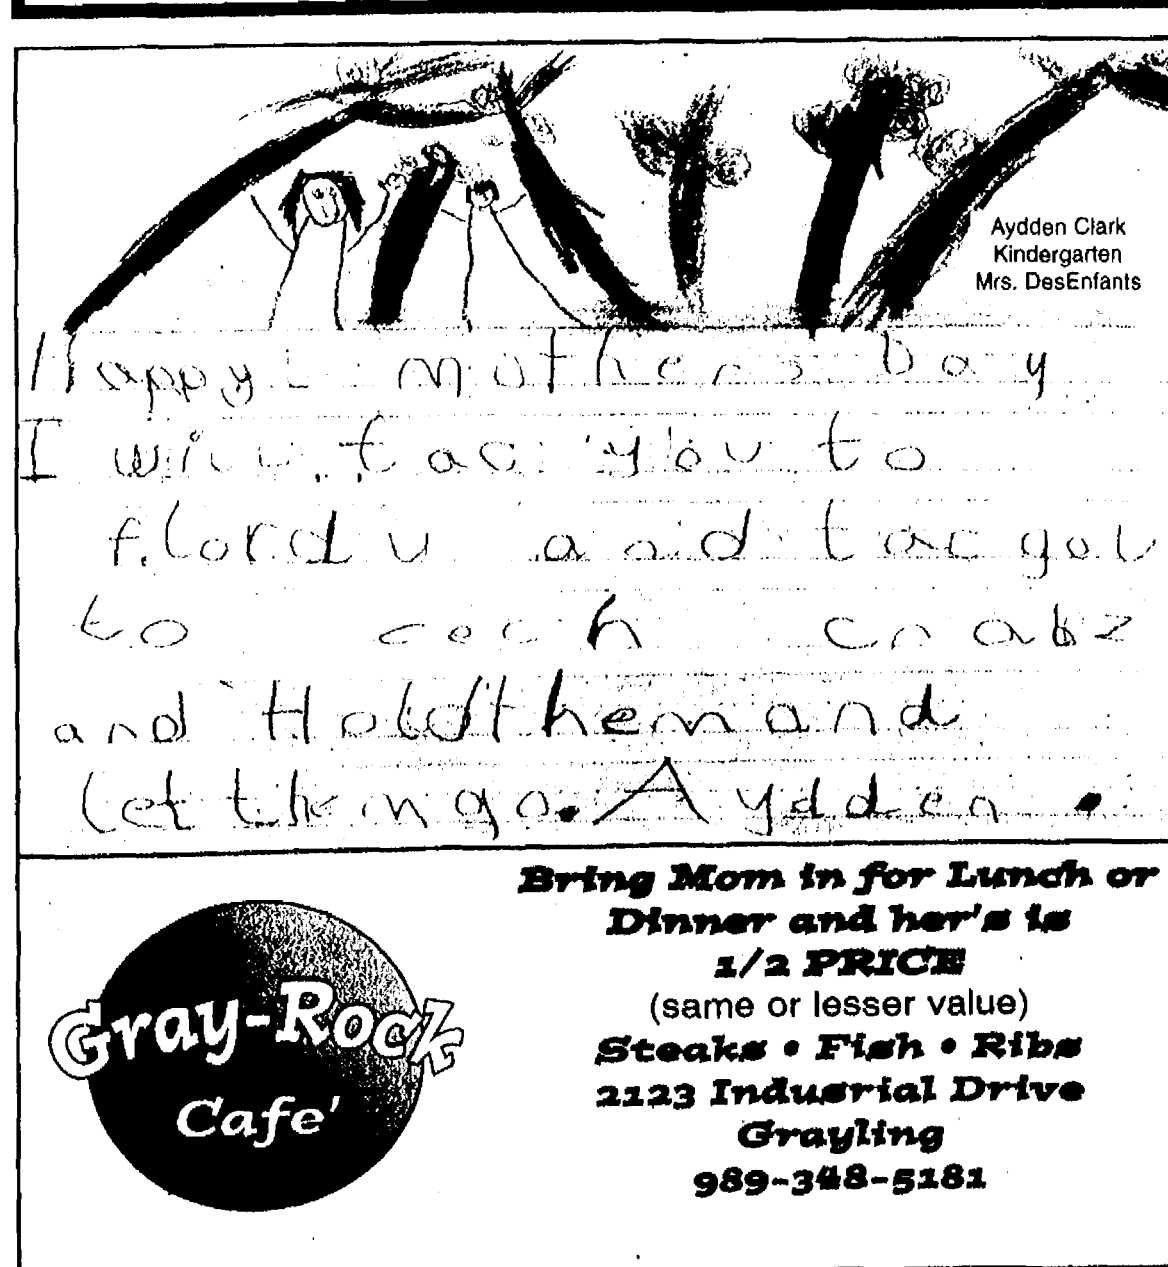 Aydden Clark
Kindergarten
Mrs. DesEnfants
Happy mothers Day
I will tac you to
flordu and tac you
to cech crabz
and Hold them and
let them go. Aydden.
Gray-Rock
Cafe'
Bring Mom in for Lunch or
Dinner and her's is
1/2 PRICE
(same or lesser value)
Steaks • Fish • Ribs
2123 Indusrial Drive
Grayling
989-348-5181